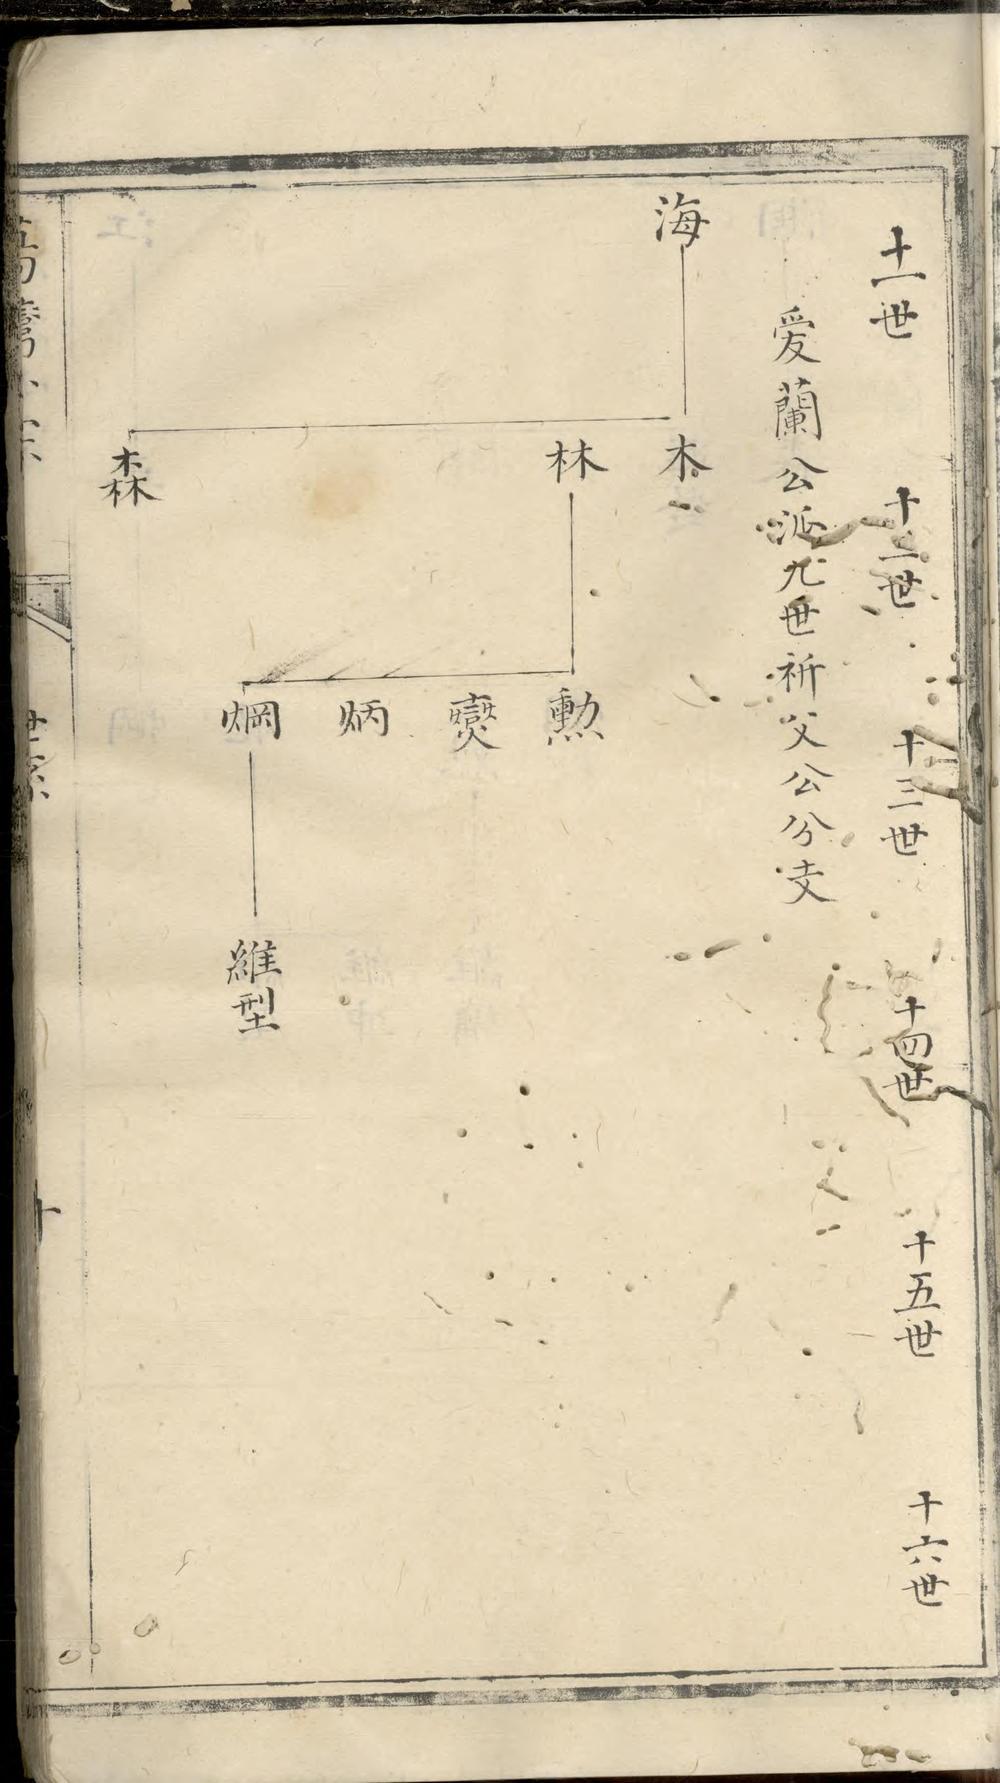 十一世
十二世
十三世
十四世
十五世
十六世
爱蘭公派九世祈父公分支
海
木
林
森
勳
爕
炳
焵
維型
世系